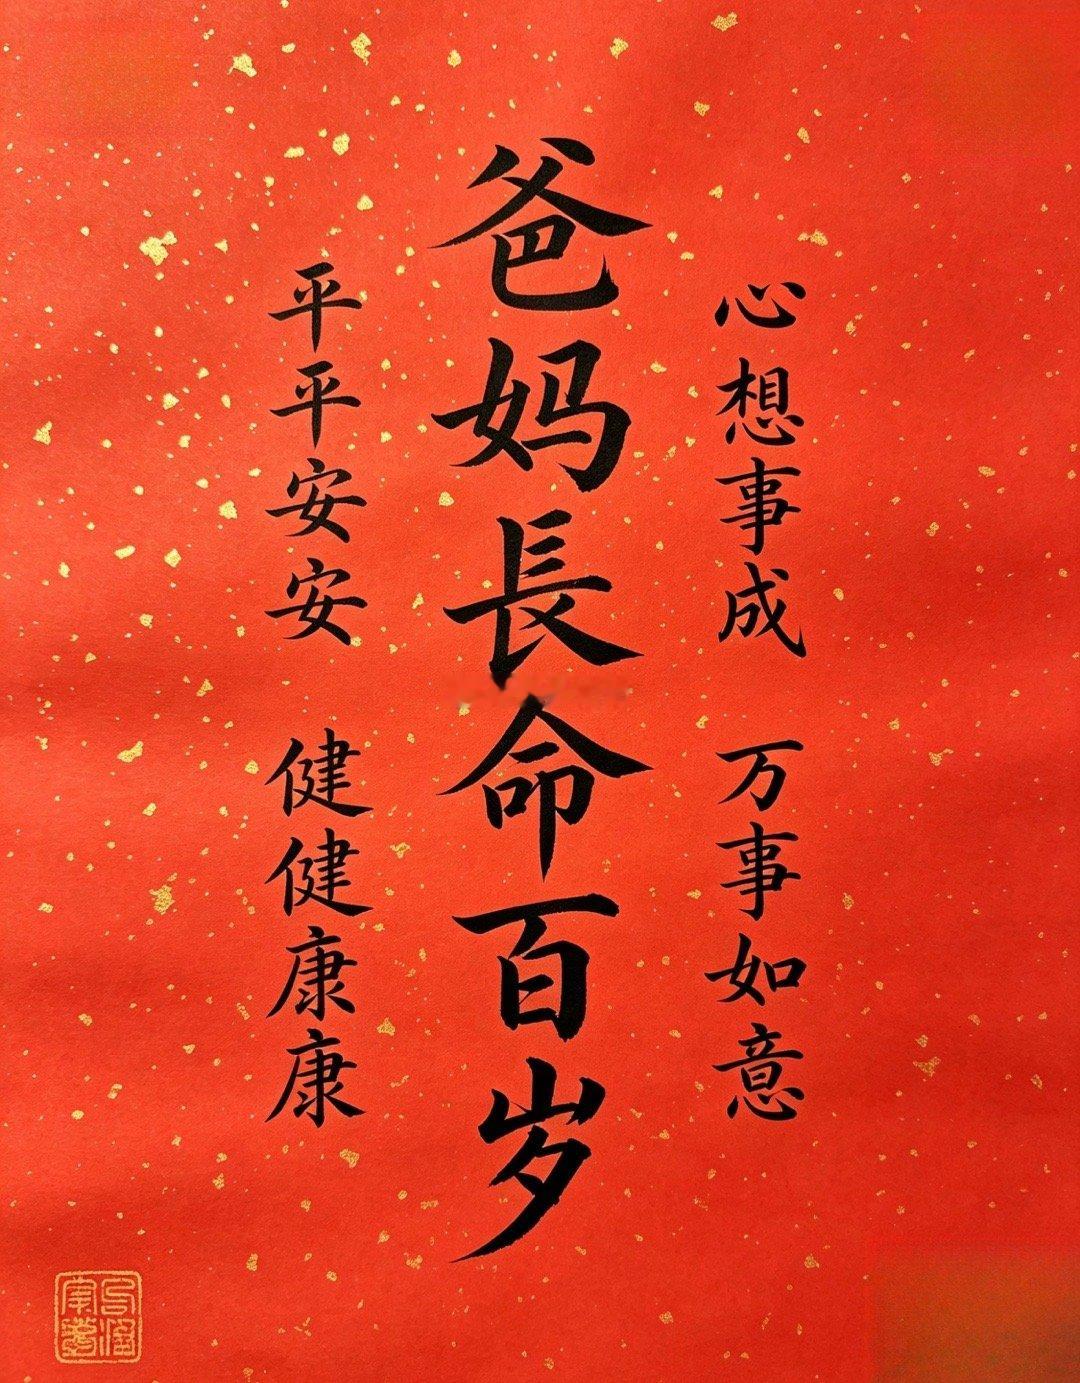 心想事成 万事如意
爸妈長命百岁
平平安安 健健康康